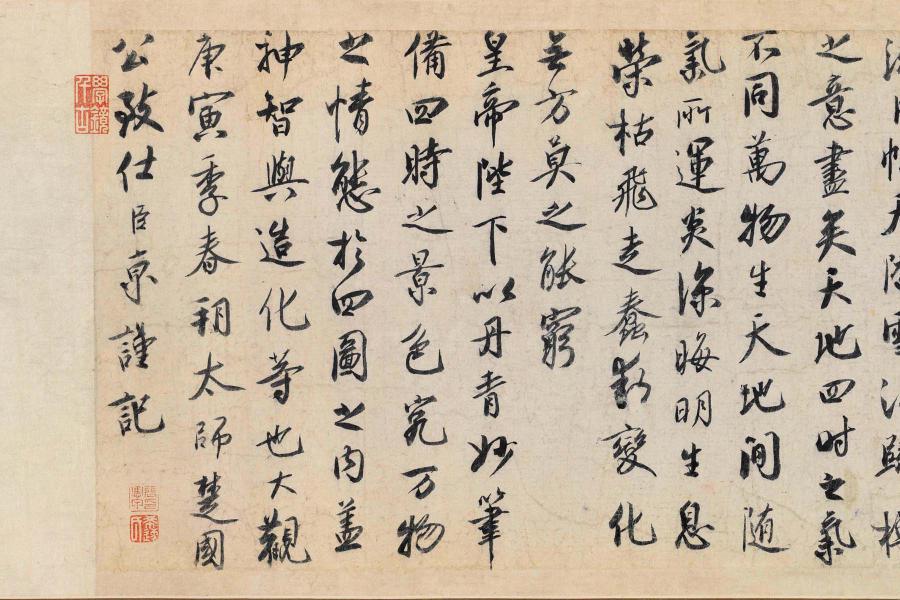 之意盡矣天地四时之氣
不同萬物生天地间随
氣所運炎涼晦明生息
榮枯飛走蠢動變化
無方莫之能窮
皇帝陛下以丹青妙筆
備四時之景色究万物
之情態於四圖之内蓋
神智與造化等也大觀
庚寅季春朔太師楚國
公致仕臣京謹記